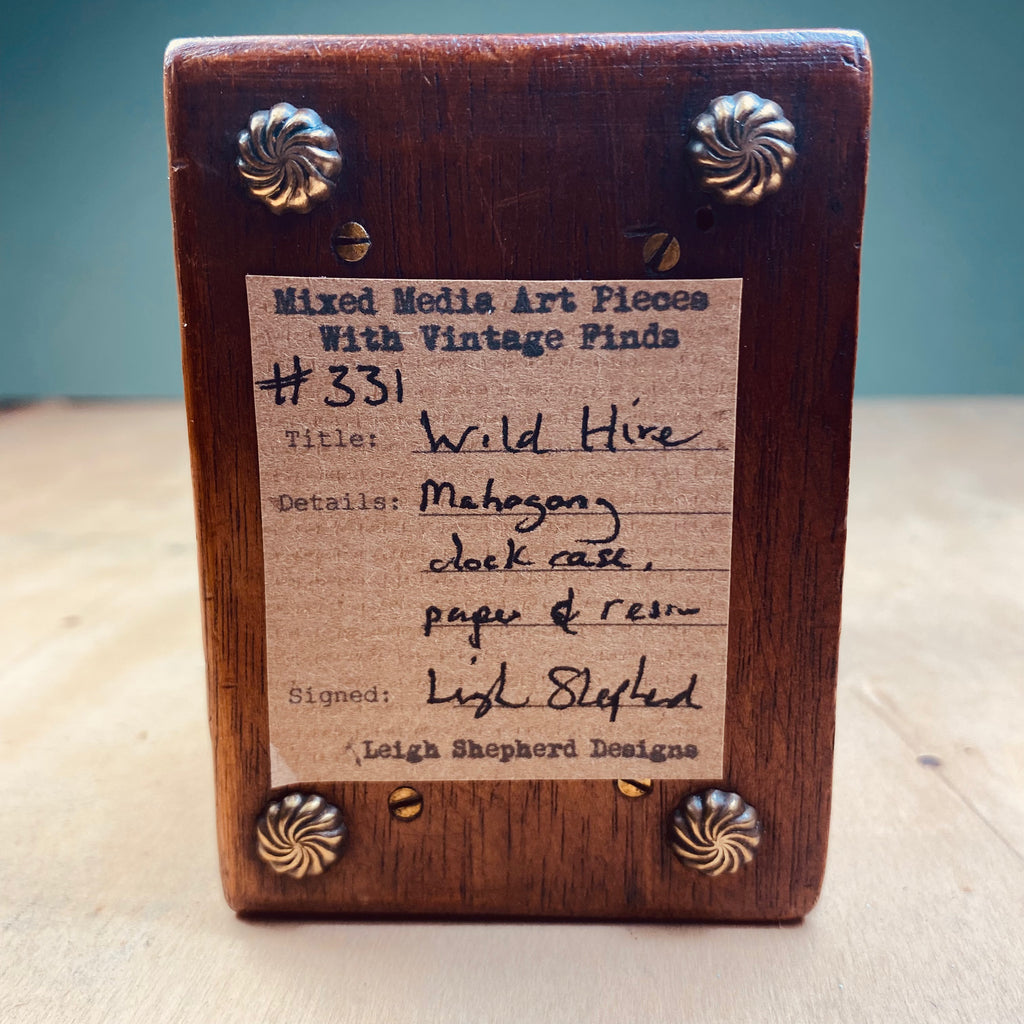 Mixed Media Art Pieces
With Vintage Finds
#331
Title: Wild Hire
Details: Mahogany
clock case,
paper & resin
Signed: Leigh Shepherd
Leigh Shepherd Designs